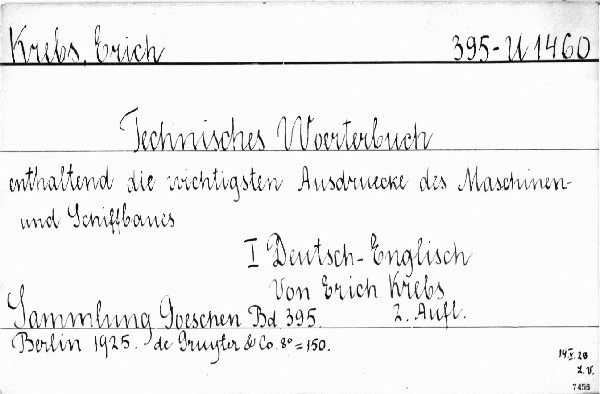 Krebs, Erich 395-U 1460
Technisches Woerterbuch
enthaltend die wichtigsten Ausdruecke des Maschinen-
und Schiffbaues
I Deutsch-Englisch
Von Erich Krebs
Sammlung Goeschen Bd 395. 2. Aufl.
Berlin 1925. de Gruyter & Co. 8° = 150.
7456